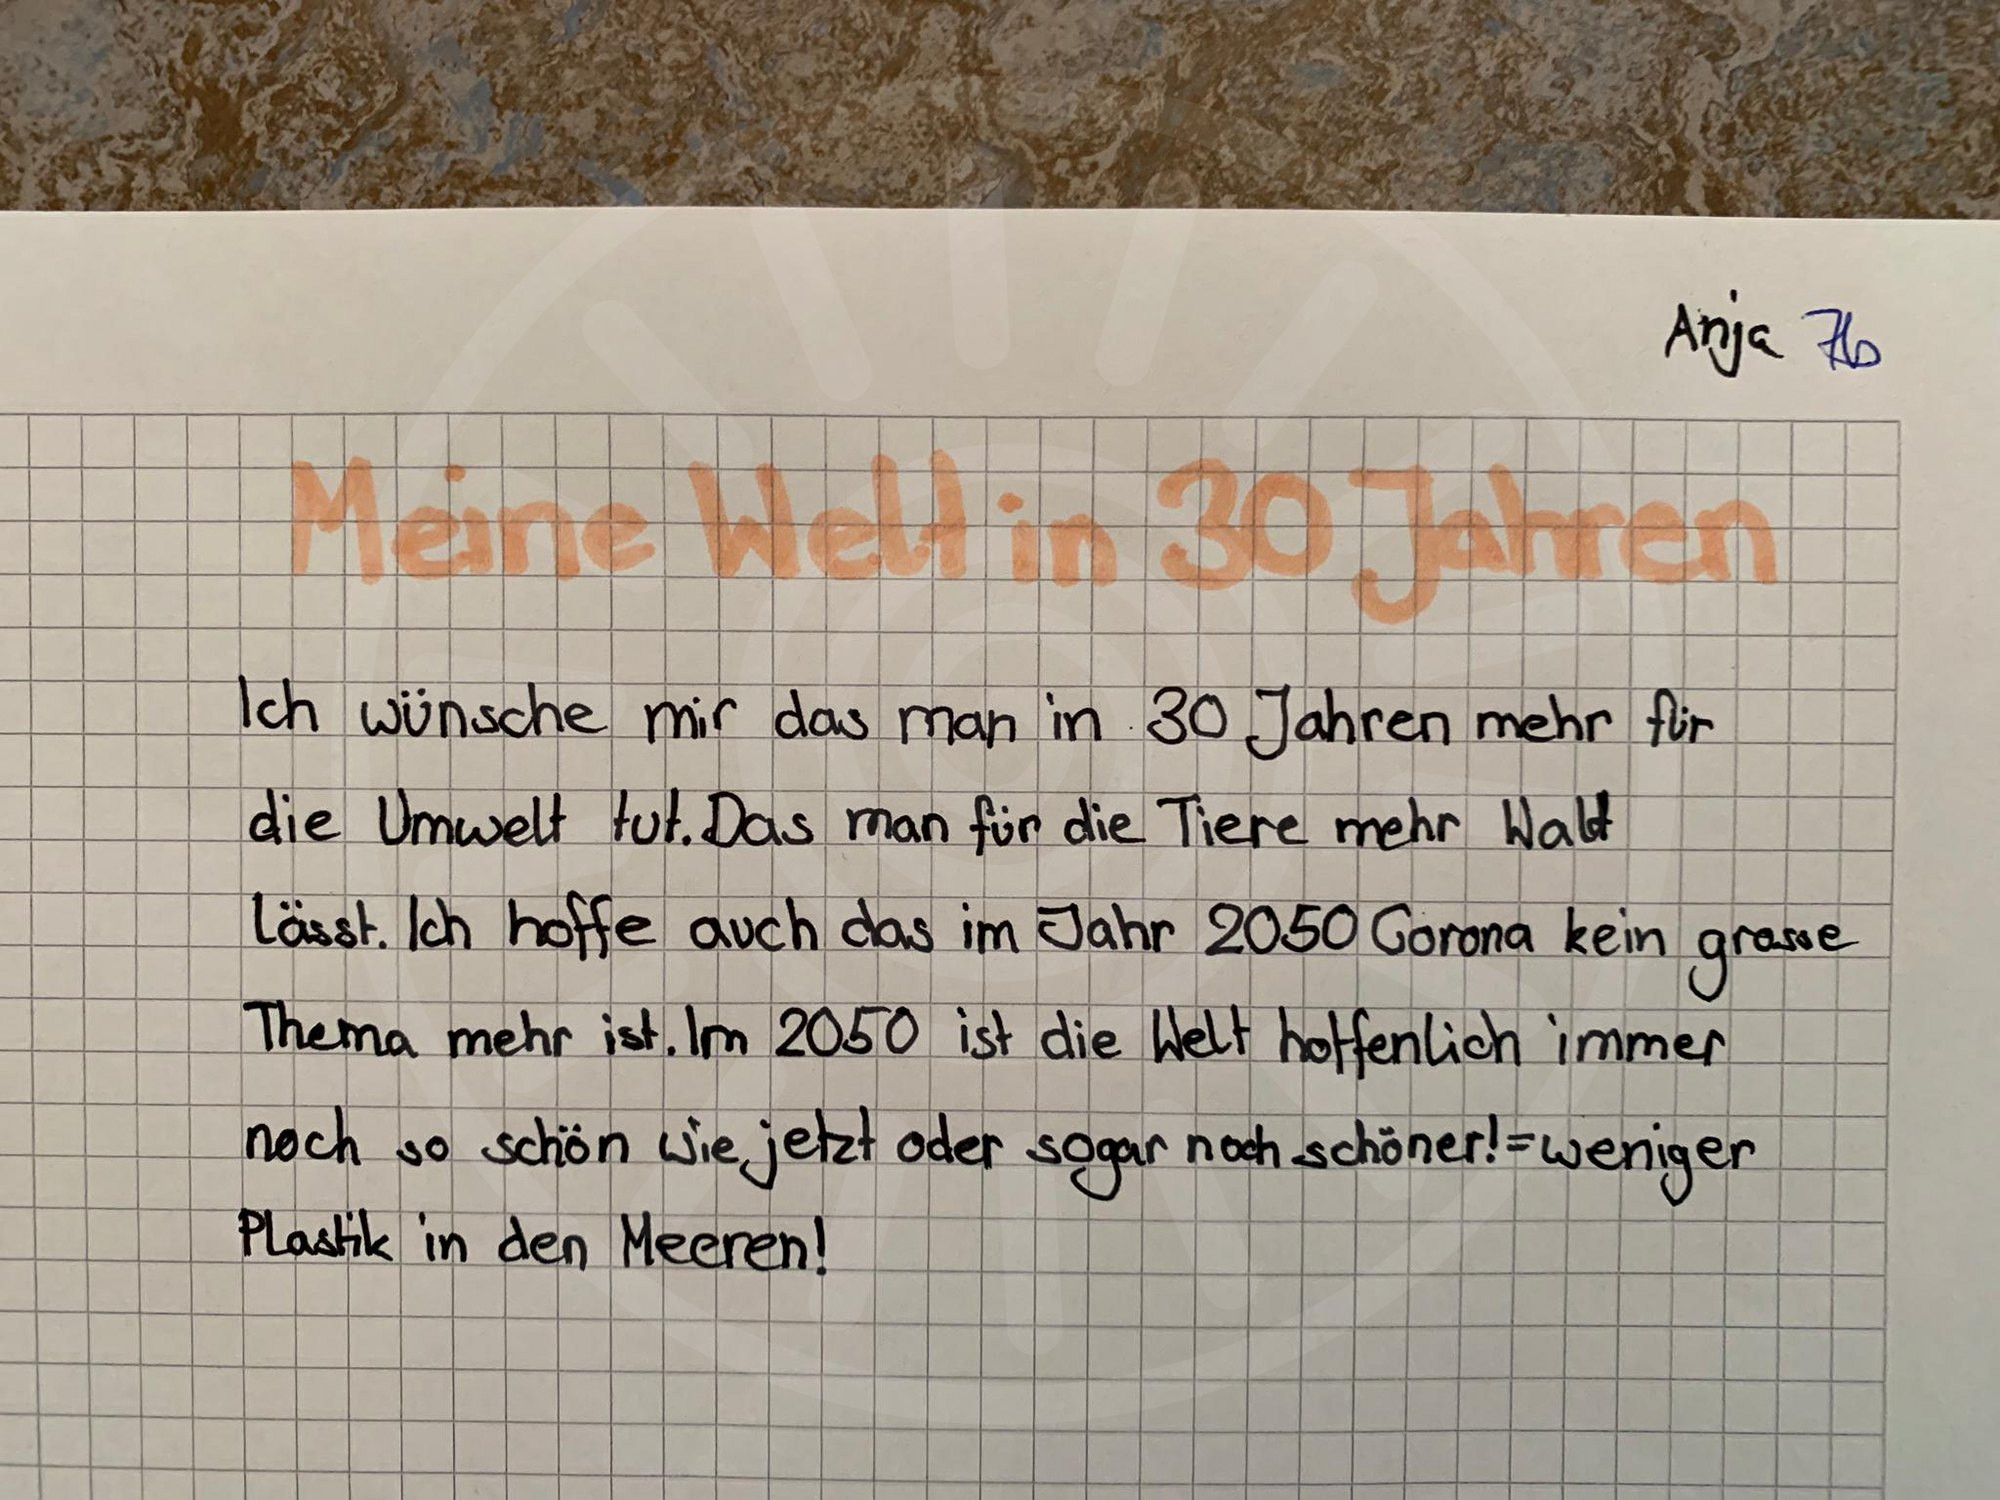 Anja 7b
Meine Welt in 30 Jahren
Ich wünsche mir das man in 30 Jahren mehr für
die Umwelt tut. Das man für die Tiere mehr Wald
lässt. Ich hoffe auch das im Jahr 2050 Corona kein grosse
Thema mehr ist. Im 2050 ist die Welt hoffenlich immer
noch so schön wie jetzt oder sogar noch schöner!=weniger
Plastik in den Meeren!